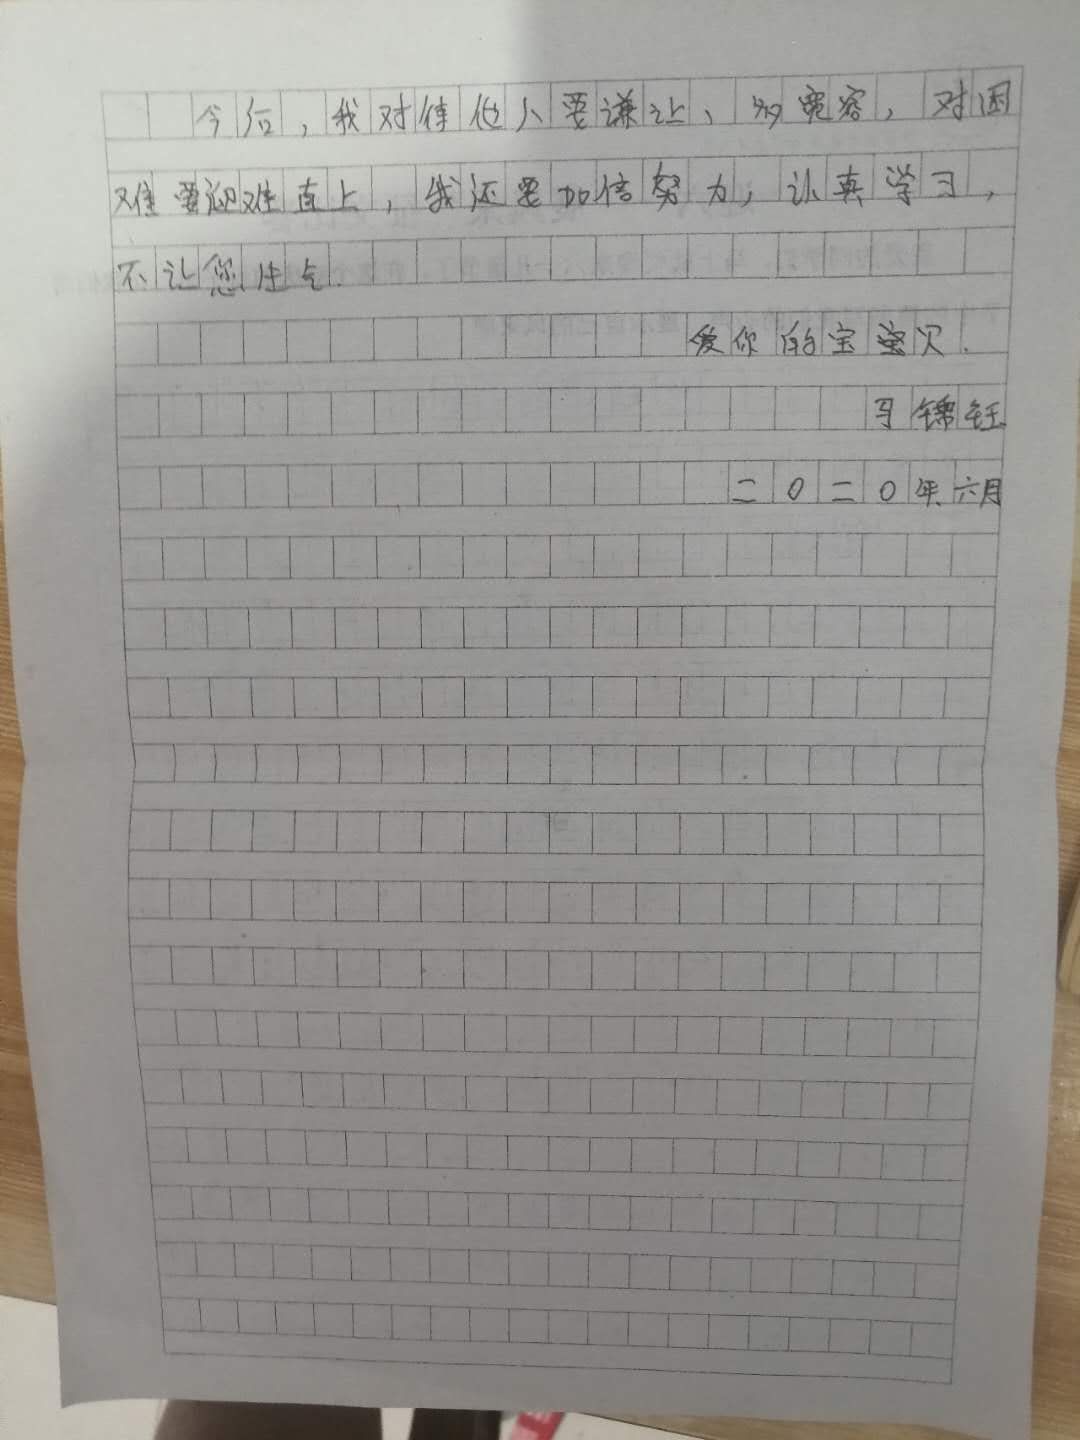 今后，我对待他人要谦让、多宽容，对困
难要迎难直上，我还要加倍努力，认真学习，
不让您生气.
爱你的宝宝贝.
马锦钰
二0二0年六月